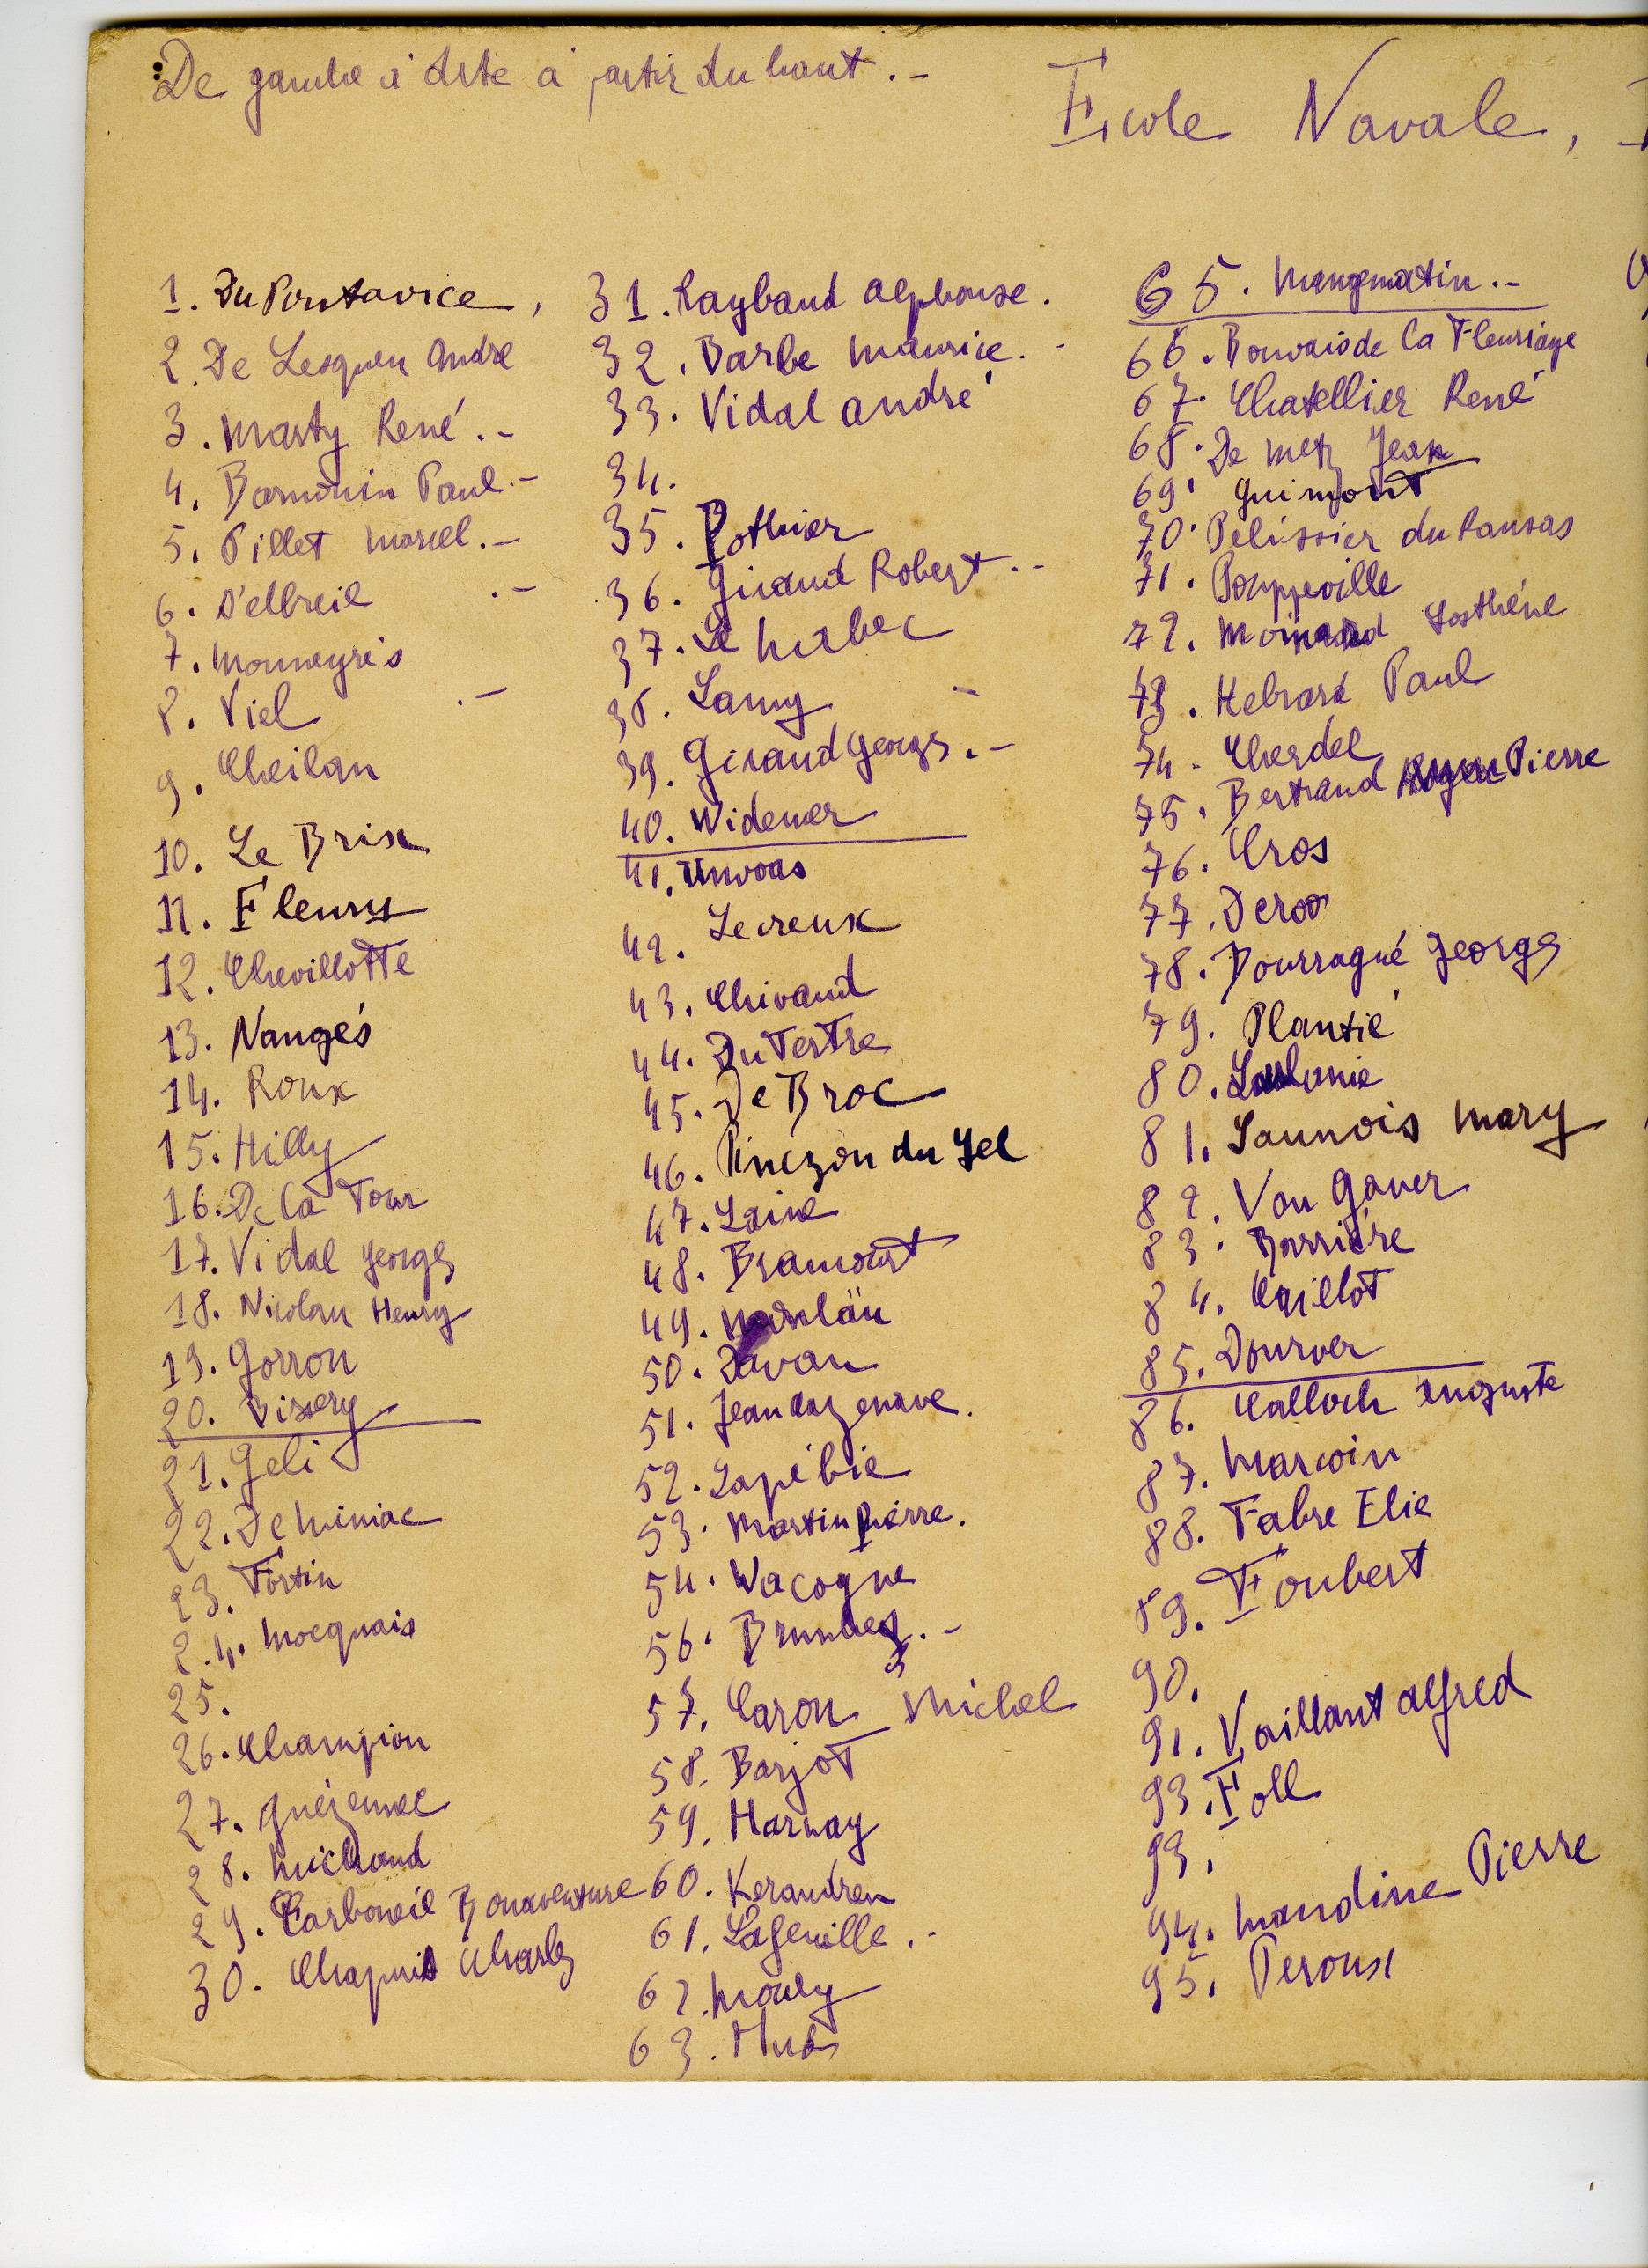 De gauche à drte à partir du haut . -
Ecole Navale,
1. Du Pontavice,
2. De Lesquen André
3. Marty René . -
4. Barnouin Paul. -
5. Pillet Marcel. -
6. D'elbreil . -
7. Mouneyrès
8. Viel . -
9. Cheilan
10. Le Brix
11. Fleury
12. Chevillotte
13. Nangés
14. Roux
15. Hilly
16. De la Tour
17. Vidal Georges
18. Nicolau Henry
19. Gorron
20. Vissery
21. Geli
22. De Miniac
23. Fortin
24. Mocquais
25.
26. Champion
27. Guézennec
28. Michaud
29. Carboneil Bonaventure
30. Chapuis Charles
31. Raybaud Alphonse.
32. Barbe Maurice. -
33. Vidal André
34.
35. Pothier
36. Giraud Robert . -
37. Le
38. Lamy -
39. Giraud Georges. -
40. Widemer
41. Unvoas
42. Lecreux
43. Chivaud
44. Du Tertre
45. De Broc
46. Pinczon du Sel
47. Laine
48. Bramoust
49.
50. Davan
51. Jean Cazenave.
52. Lapébie
53. Martin Pierre.
54. Wacogne
56. Brunhes. -
57. Caron Michel
58. Barjot
59. Harnay
60. Kerandren
61. Lafeuille . -
62. Mouly
63.
65. Mengmatin. -
66. Bouvais de la Fleuriaye
67. Chatellier René
68. De Metz Jean
69. Guimont
70. Pelissier du Rausas
71. Pouppeville
72. Moinard Sosthéne
73. Hebrard Paul
74. Cherdel
75. Bertrand Pierre
76. Cros
77. Deroo
78. Dourragné Georges
79. Plantié
80. Laulanie
81. Saunois Mary
82. Von Gaver
83. Barrière
84. Caillot
85. Dourver
86. Calloch Auguste
87. Marcoin
88. Fabre Elie
89. Foubert
90.
91. Vaillant Alfred
93. Foll
93.
94. Mandine Pierre
95. Peroux